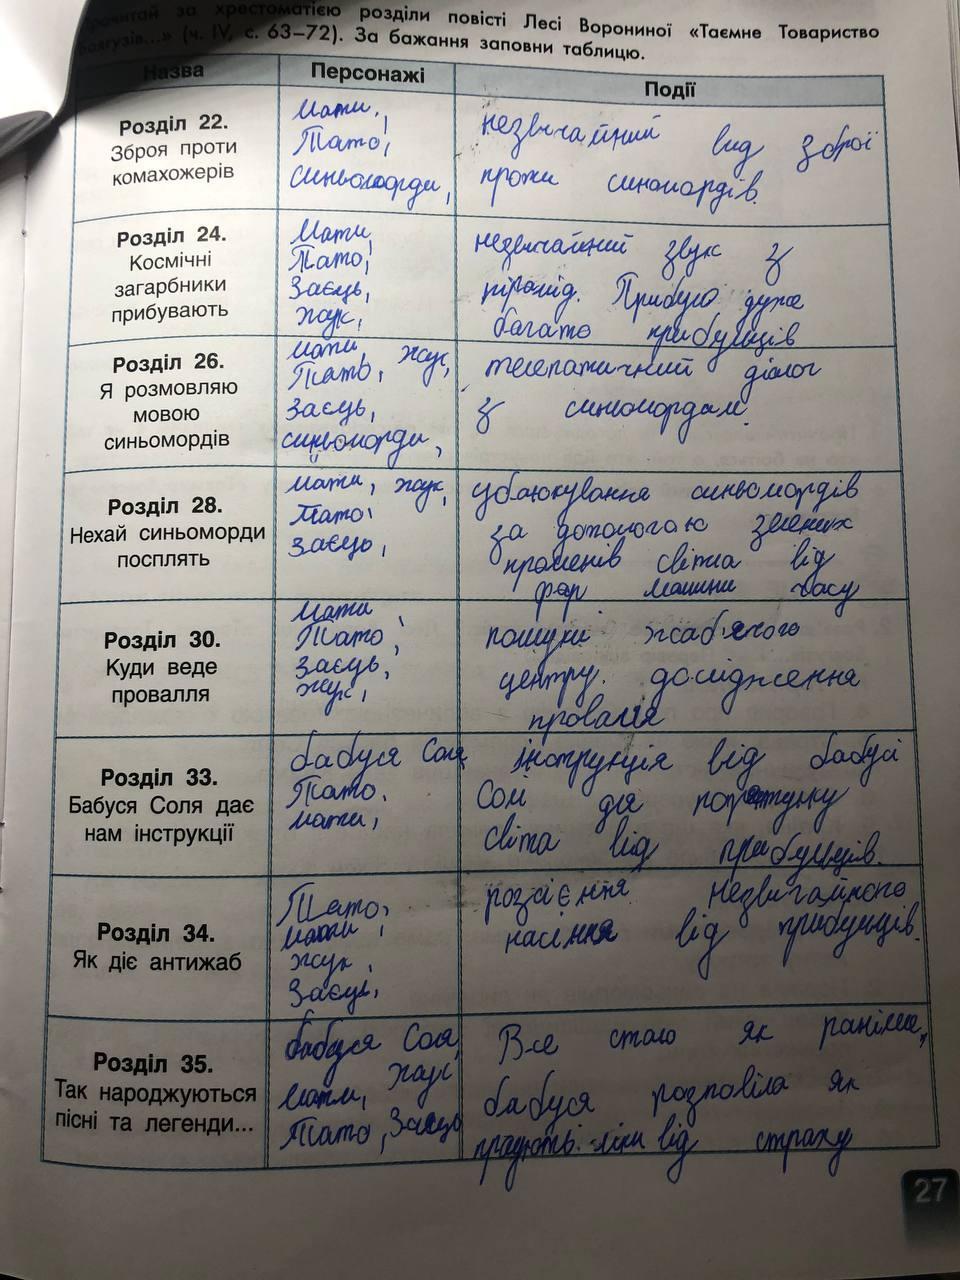 Прочитай за хрестоматією розділи повісті Лесі Ворониної «Таємне Товариство
боягузів...» (ч. IV, с. 63–72). За бажання заповни таблицю.
Назва
Персонажі
Події
Розділ 22.
Зброя проти
комахожерів
Мати,
Тато,
синьоморди,
незвичайний вид зброї
проти синомордів.
Розділ 24.
Космічні
загарбники
прибувають
Мати,
Тато,
Заєць,
Жук,
незвичайний звук з
пірамід. Прибуло дуже
багато прибульців
Розділ 26.
Я розмовляю
мовою
синьомордів
мати, жук,
Тато,
Заєць,
синьоморди,
телепатичний діалог
з синьомордам.
Розділ 28.
Нехай синьоморди
посплять
мати, жук,
Тато,
Заєць,
убаюкування синьомордів
за допомогаю зелених
променів світла від
фар машини часу
Розділ 30.
Куди веде
провалля
Мати,
Тато,
Заєць,
жук,
пошуки жаб'ячого
центру. дослідження
провалля
Розділ 33.
Бабуся Соля дає
нам інструкції
бабуся Соля
Тато.
мати,
інструкція від бабусі
Солі для порятунку
світа від прибульців.
Розділ 34.
Як діє антижаб
Тато,
мати,
жук,
Заєць,
розсієння незвичайного
насіння від прибульців.
Розділ 35.
Так народжуються
пісні та легенди...
бабуся Соля,
мати, жук
Тато, Заєць
Все стало як раніше,
бабуся розповіла як
ліки від страху
27